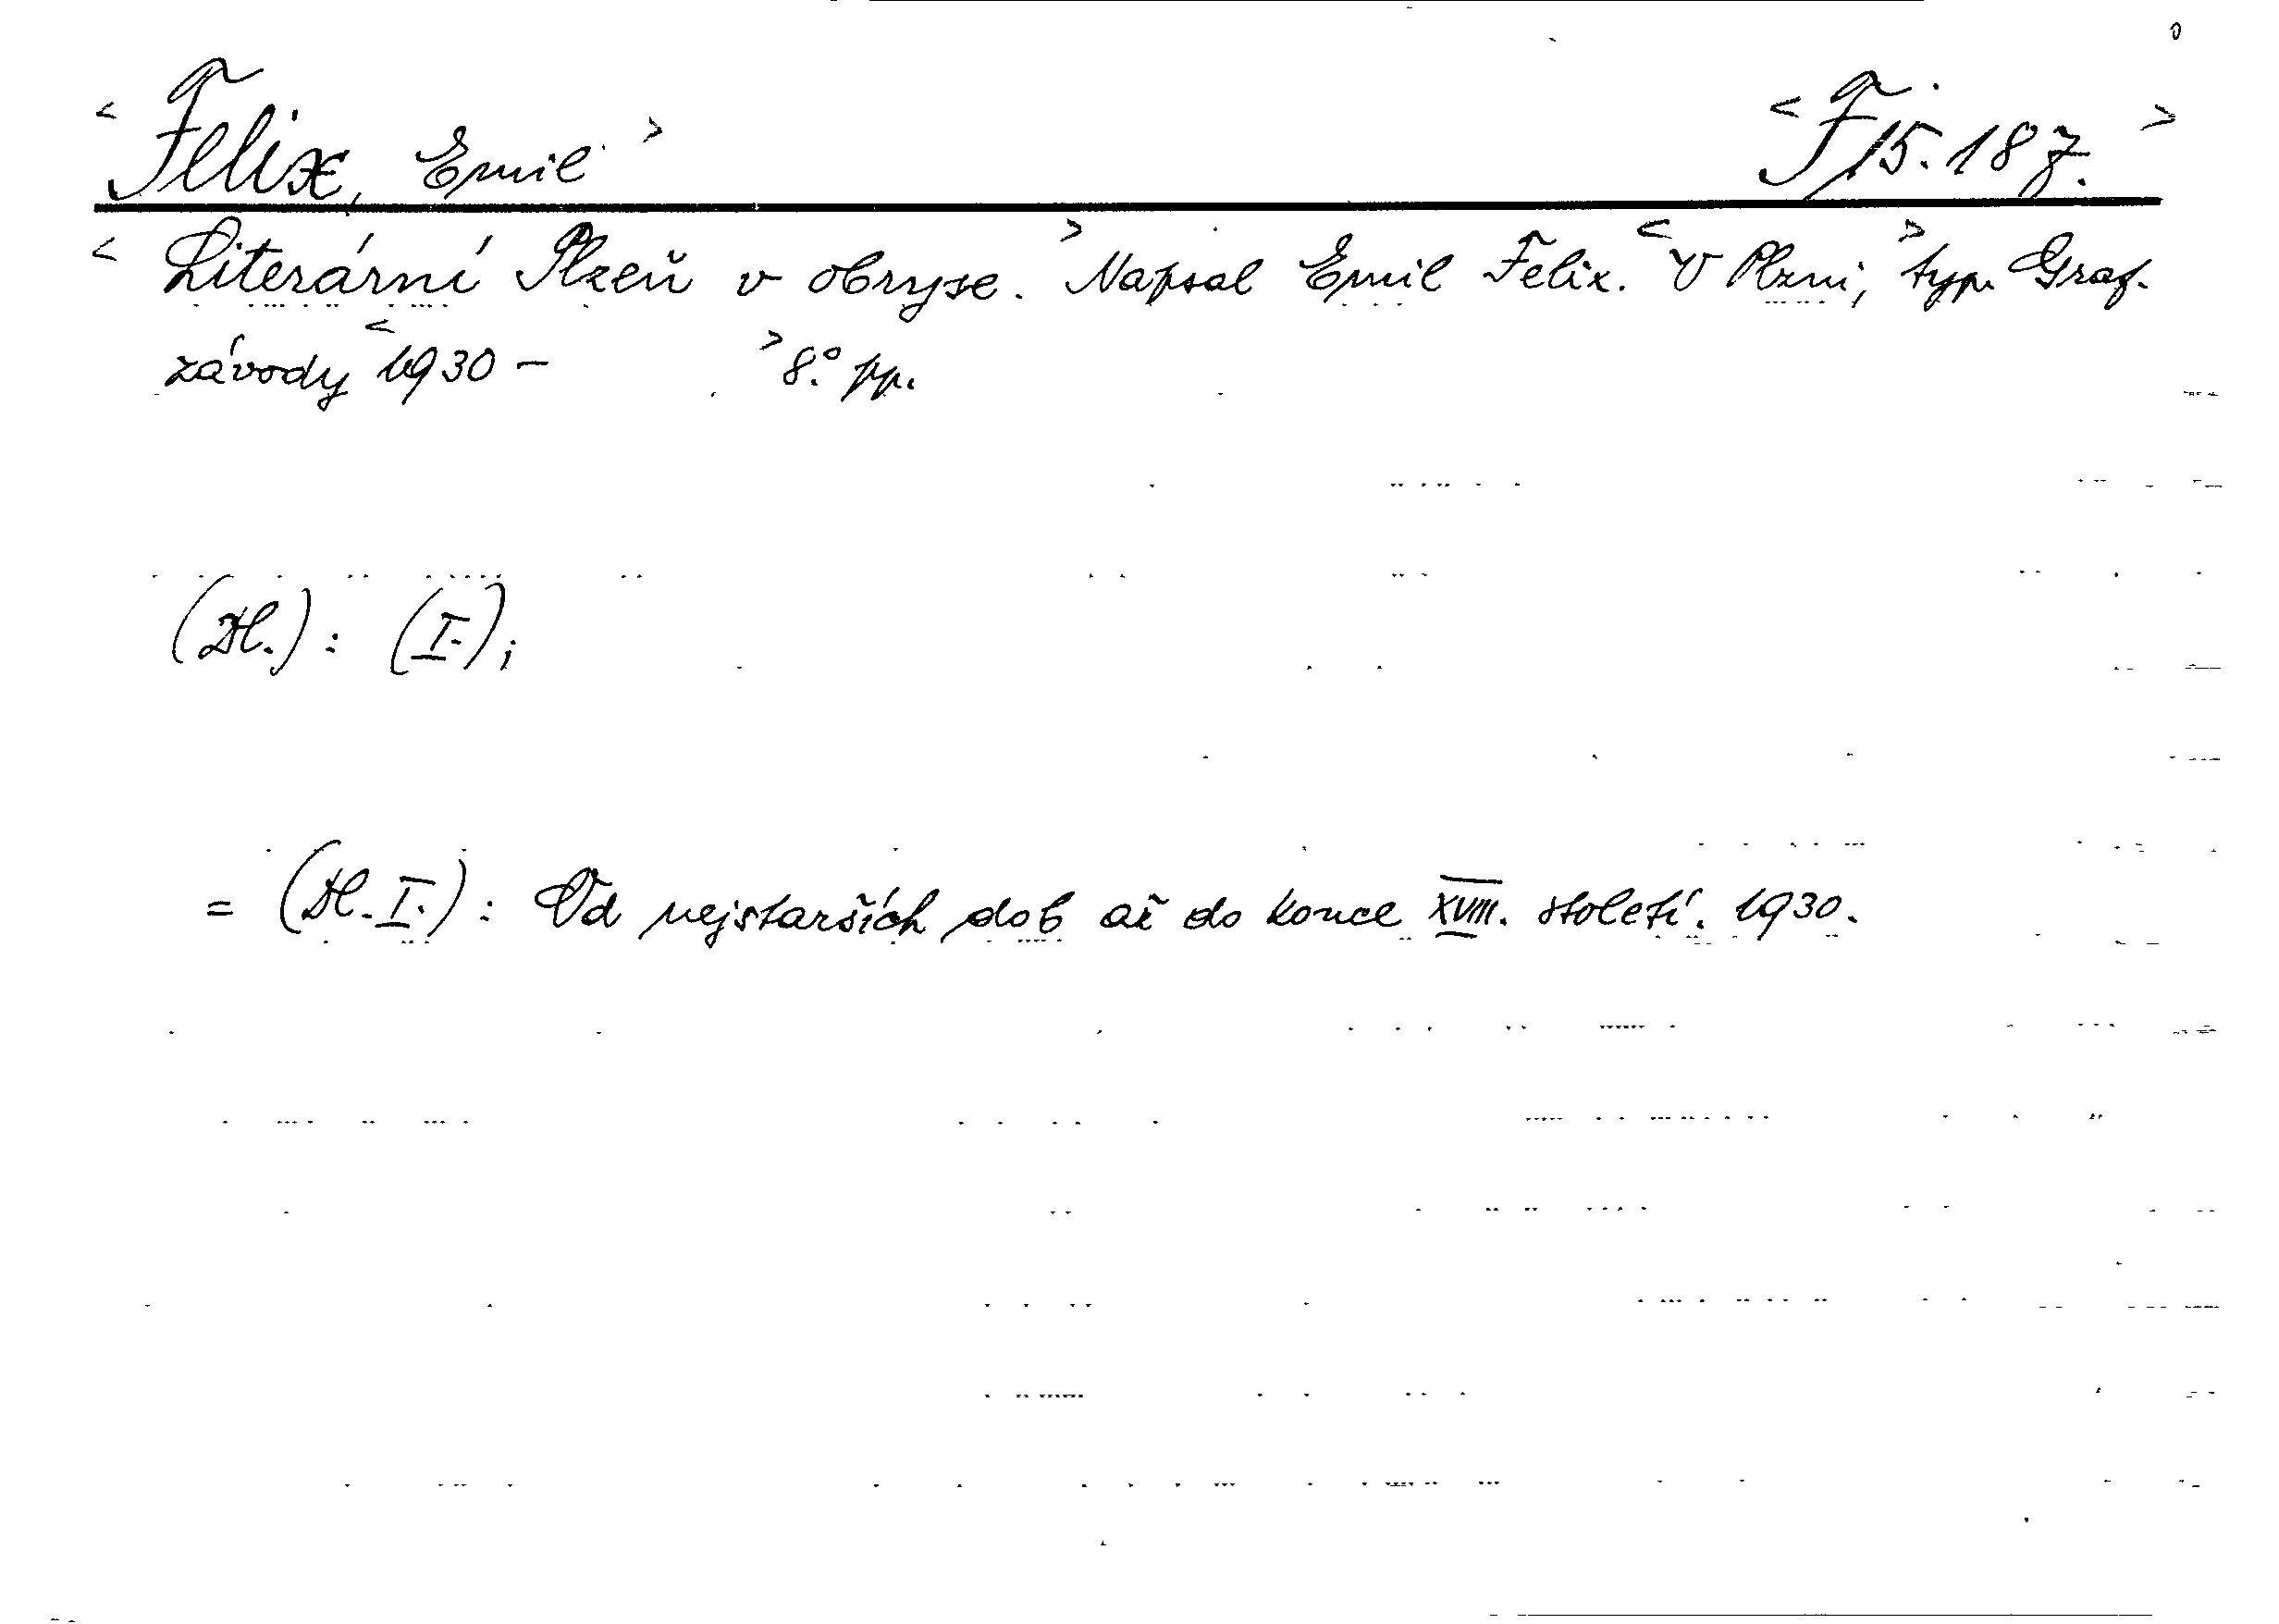 < Felix, Emil > < F 15.187. >
< Literární Plzeň v obryse. > Napsal Emil Felix. < V Plzni, > typ. Graf.
závody < 1930 – > 8.° pp.
(Díl.): (I.);
= (Díl. I.): Od nejstarších dob až do konce XVIII. století. 1930.